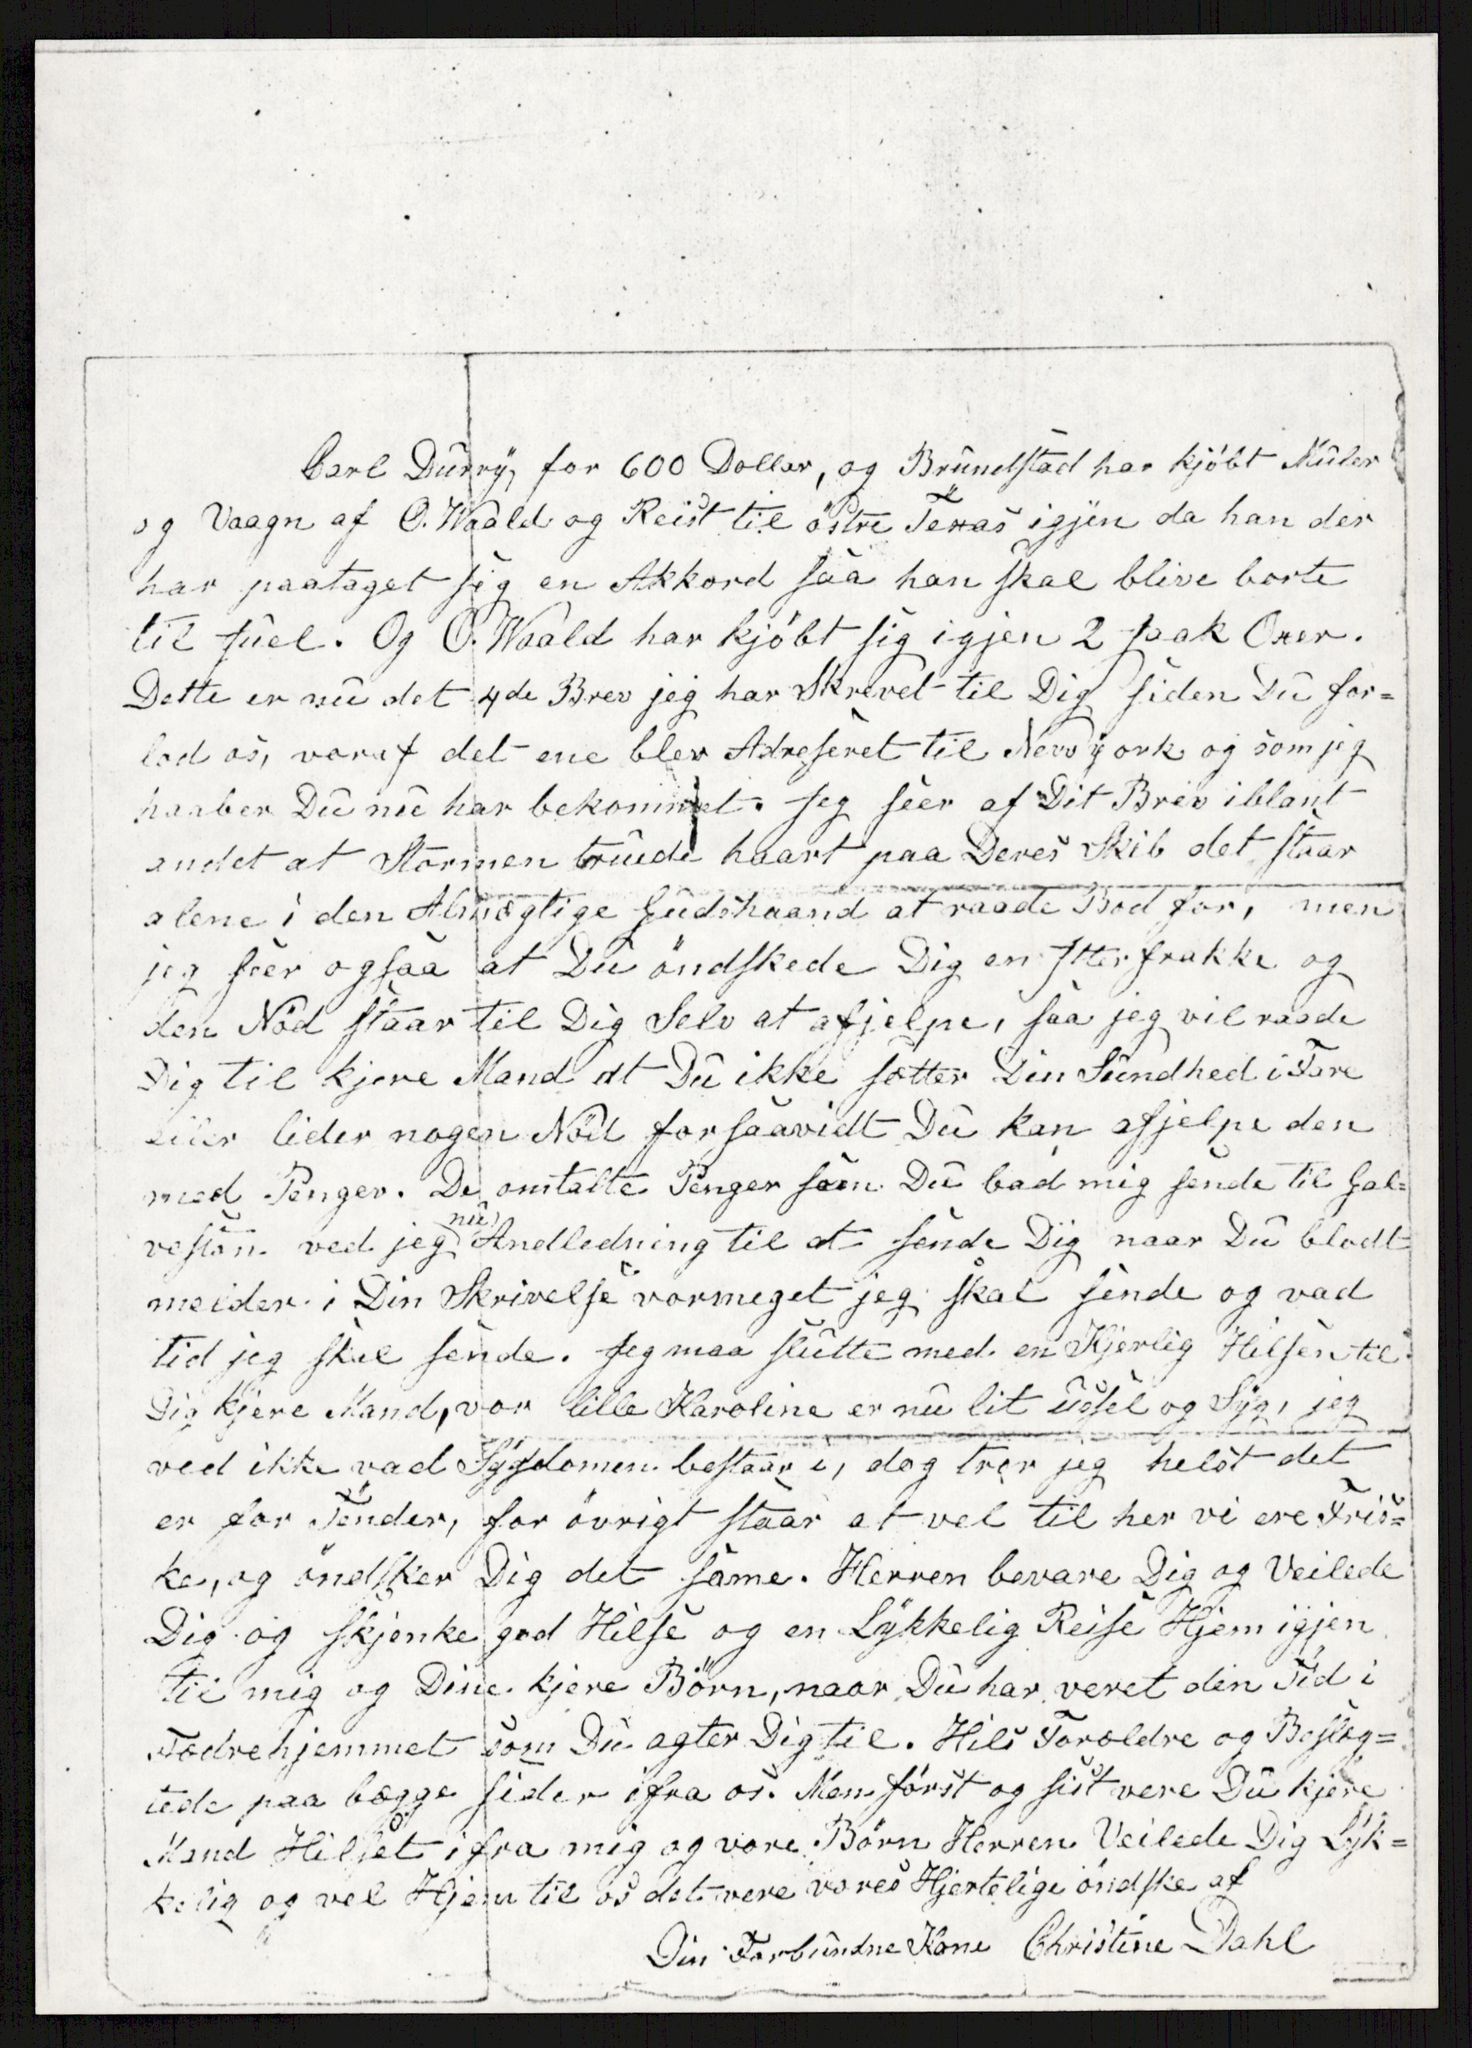 Carl Durry, for 600 Dollar, og Brundstad har kjöbt Muler
og Vaagn af O. Waald og Reist til östre Texas igjen da han der
har paataget sig en Akkord saa han skal blive borte
til Juel. Og O. Waald har kjöbt sig igjen 2 Jaak Oxer.
Dette er nu det 4de Brev jeg har Skrevet til Dig siden Du for=
lod os, voraf det ene blev Adreseret til New york og som jeg
haaber Du nu har bekommet. Jeg seer af Dit Brev iblant
andet at Stormen truede haart paa Deres Skib det staar
alene i den Almægtige Gudshaand at raade Bod for, men
jeg seer ogsaa at Du öndskede Dig en Itterfrakke og
den Nöd staar til Dig Selv at afjelpe, saa jeg vil raade
Dig til kjere Mand at Du ikke sætter Din Sundhed i Fare
eller lider nogen Nöd forsaavidt Du kan afjelpe den
med Penger. De omtalte Penger som Du bad mig sende til Gal=
veston ved jeg nu Andledning til at sende Dig naar Du blodt
melder i Din Skrivelse vormeget jeg skal sende og vad
tid jeg skal sende. Jeg maa slutte med en Kjerlig Hilsen til
Dig kjere Mand, vor lille Karoline er nu lit ussel og Syg, jeg
ved ikke vad Sygdomen bestaar i, dog tror jeg helst det
er for Tender, for övrigt staar at vel til her vi ere Fris=
ke, og öndsker Dig det same. Herren bevare Dig og Veilede
Dig og skjenke god Hilse og en Lykkelig Reise Hjem igjen
til mig og Dine kjere Börn, naar Du har veret den Tid i
Fodrehjemmet som Du agter Dig til. Hils Foroldre og Beslög=
tede paa bægge sider ifra os. Men först og sist vere Du kjere
Mand Hilset ifra mig og vore Börn Herren Veilede Dig Lyk=
kelig og vel Hjem til os det vere vores Hjertelige öndske af
Din Forbundne Kone Christine Dahl